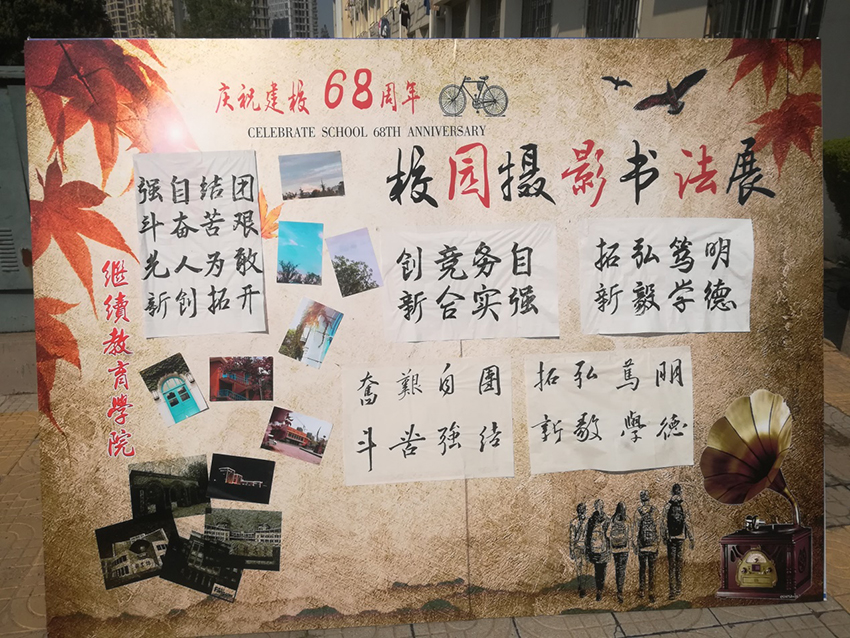 庆祝建校68周年
CELEBRATE SCHOOL 68TH ANNIVERSARY
校园摄影书法展
团结自强
艰苦奋斗
敢为人先
开拓创新
自强
务实
竞合
创新
明德
笃学
弘毅
拓新
继續教育學院
團结
自強
艱苦
奮斗
明德
篤學
弘毅
拓新